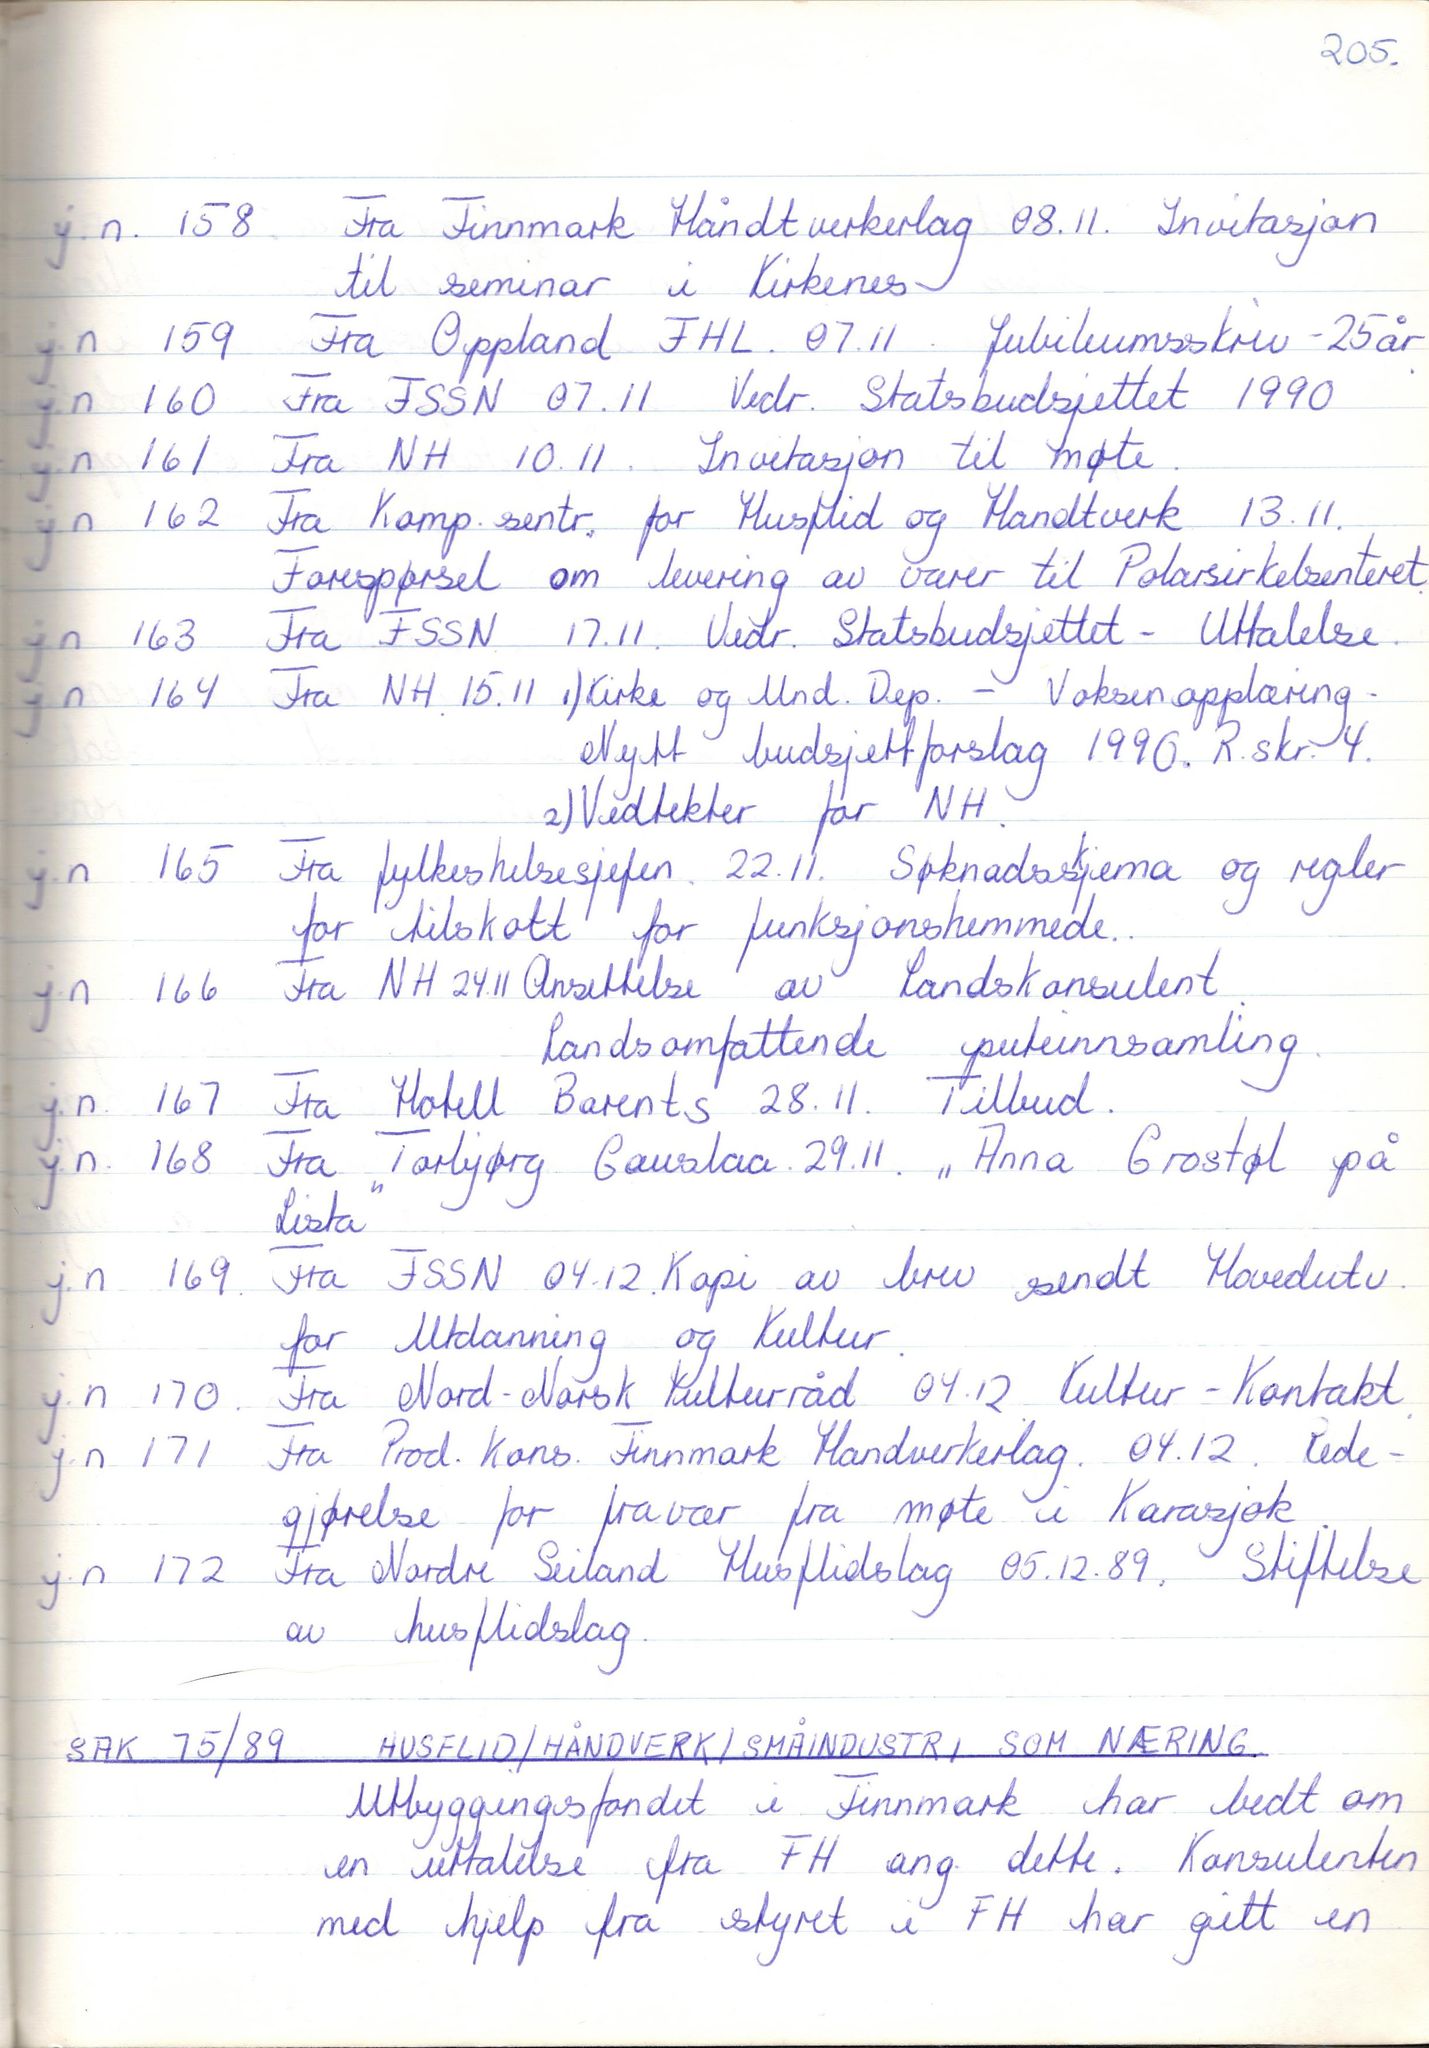 205.
j.n. 158 Fra Finnmark Håndtverkerlag 08.11. Invitasjon
til seminar i Kirkenes
j.n 159 Fra Oppland FHL. 07.11. Jubileumsskriv - 25 år
j.n 160 Fra FSSN 07.11 Vedr. Statsbudsjettet 1990
j.n 161 Fra NH 10.11. Invitasjon til møte.
j.n 162 Fra Komp. sentr. for Husflid og Handtverk 13.11.
Forespørsel om levering av varer til Polarsirkelsenteret.
j.n 163 Fra FSSN 17.11. Vedr. Statsbudsjettet - Uttalelse.
j.n 164 Fra NH 15.11 1) Kirke og Und. Dep. - Voksenopplæring -
Nytt budsjettforslag 1990. R.skr. 4.
2) Vedtekter for NH.
j.n 165 Fra fylkeshelsesjefen. 22.11. Søknadsskjema og regler
for tilskott for funksjonshemmede..
j.n 166 Fra NH 24.11 Ansettelse av Landskonsulent.
Landsomfattende puteinnsamling.
j.n. 167 Fra Hotell Barents 28.11. Tilbud.
j.n. 168 Fra Torbjørg Gauslaa. 29.11. „Anna Grostøl på
Lista"
j.n 169. Fra FSSN 04.12. Kopi av brev sendt Hovedutv.
for Utdanning og Kultur.
j.n 170. Fra Nord-Norsk Kulturråd 04.12 Kultur - Kontakt.
j.n 171 Fra Prod. Kons. Finnmark Handverkerlag. 04.12. Rede-
gjørelse for fravær fra møte i Karasjok.
j.n 172 Fra Nordre Seiland Husflidslag 05.12.89. Stiftelse
av husflidslag.
SAK 75/89 HUSFLID/HÅNDVERK/SMÅINDUSTRI SOM NÆRING.
Utbyggingsfondet i Finnmark har bedt om
en uttalelse fra FH ang. dette. Konsulenten
med hjelp fra styret i FH har gitt en